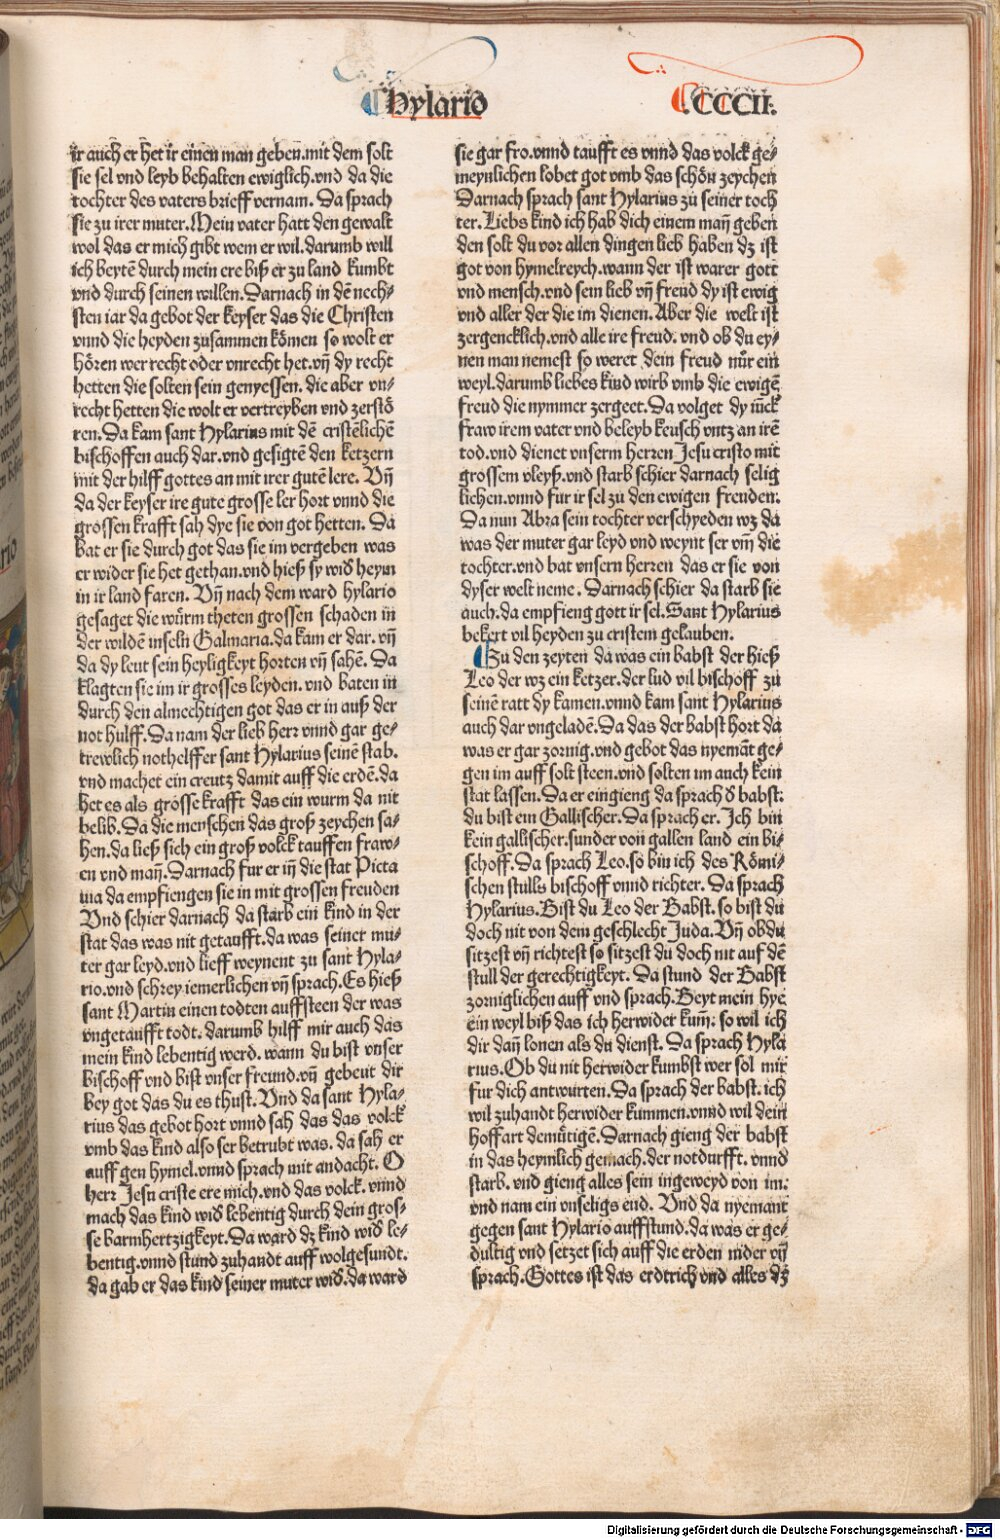 Hylario
CCCII.
ir auch er het ir einen man geben.mit dem solt
sie sel vnd leyb behalten ewiglich.vnd da die
tochter des vaters brieff vernam. Da sprach
sie zu irer muter.Mein vater hatt den gewalt
wol das er mich gibt wem er wil.darumb will
ich beytē durch mein ere biß er zu land kumbt
vnd durch seinen willen.Darnach in dē nech⸗
sten iar da gebot der keyser das die Christen
vnnd die heyden zusammen kömen so wolt er
hören wer recht oder vnrecht het.vn̄ dy recht
hetten die solten sein genyessen. die aber vn⸗
recht hetten die wolt er vertreyben vnd zerstö
ren.Da kam sant Hylarius mit dē cristēlichē
bischoffen auch dar.vnd gesigtē den ketzern
mit der hilff gottes an mit irer gutē lere. Vn̄
da der keyser ire gute grosse ler hort vnnd die
grossen krafft sah dye sie von got hetten. Da
bat er sie durch got das sie im vergeben was
er wider sie het gethan.vnd hieß sy wid heym
in ir land faren. Vn̄ nach dem ward hylario
gesaget die würm theten grossen schaden in
der wildē inseln Galmaria.da kam er dar. vn̄
da dy leut sein heyligkeyt horten vn̄ sahē. Da
klagten sie im ir grosses leyden. vnd baten in
durch den almechtigen got das er in auß der
not hulff. Da nam der lieb herr vnnd gar ge⸗
trewlich nothelffer sant Hylarius seinē stab.
vnd machet ein creutz damit auff die erdē.da
het es als grosse krafft das ein wurm da nit
belib. Da die menschen das groß zeychen sa⸗
hen.da ließ sich ein groß volck tauffen fraw⸗
en vnd man̄. Darnach fur er in̄ die stat Picta
uia da empfiengen sie in mit grossen freuden
Vnd schier darnach da starb ein kind in der
stat das was nit getaufft.da was seiner mu⸗
ter gar leyd.vnd lieff weynent zu sant Hyla⸗
rio.vnd schrey iemerlichen vn̄ sprach.Es hieß
sant Martin einen todten auffsteen der was
vngetaufft todt. darumb hilff mir auch das
mein kind lebentig werd. wann du bist vnser
bischoff vnd bist vnser freund.vn̄ gebeut dir
bey got das du es thust. Vnd da sant Hyla⸗
rius das gebot hort vnnd sah das das volck
vmb das kind also ser betrubt was. da sah er
auff gen hymel.vnnd sprach mit andacht. O
herr Jesu criste ere mich.vnd das volck. vnnd
mach das kind wid lebentig durch dein gros⸗
se barmhertzigkeyt. Da ward dz kind wid le⸗
bentig.vnnd stund zuhandt auff wolgesundt.
da gab er das kind seiner muter wid.da ward
sie gar fro.vnnd taufft es vnnd das volck ge⸗
meynlichen lobet got vmb das schön zeychen
Darnach sprach sant Hylarius zu seiner toch
ter. Liebs kind ich hab dich einem man̄ geben
den solt du vor allen dingen lieb haben dz ist
got von hymelreych.wann der ist warer gott
vnd mensch.vnd sein lieb vn̄ freud dy ist ewig
vnd aller der die im dienen. Aber die welt ist
zergencklich.vnd alle ire freud. vnd ob du ey⸗
nen man nemest so weret dein freud nür ein
weyl.darumb liebes kind wirb vmb die ewigē
freud die nymmer zergeet.Da volget dy iūck
fraw irem vater vnd beleyb keusch vntz an irē
tod.vnd dienet vnserm herren Jesu cristo mit
grossem vleyß.vnd starb schier darnach selig
lichen.vnnd fur ir sel zu den ewigen freuden.
Da nun Abra sein tochter verschyeden wz da
was der muter gar leyd vnd weynt ser vm̄ die
tochter.vnd bat vnsern herren das er sie von
dyser welt neme . Darnach schier da starb sie
auch.da empfieng gott ir sel. Sant Hylarius
bekert vil heyden zu cristem gelauben.
Zu den zeyten da was ein babst der hieß
Leo der wz ein ketzer.der lud vil bischoff zu
seinē ratt dy kamen.vnnd kam sant Hylarius
auch dar vngeladē. Da das der babst hort da
was er gar zornig.vnd gebot das nyemāt ge⸗
gen im auff solt steen.vnd solten im auch kein
stat lassen. Da er eingieng da sprach d babst.
du bist ein Gallischer. Da sprach er. Ich bin
kein gallischer.sunder von gallen land ein bi⸗
schoff. Da sprach Leo.so bin ich des Römi⸗
schen stulls bischoff vnnd richter. Da sprach
Hylarius. Bist du Leo der Babst. so bist du
doch nit von dem geschlecht Juda. Vn̄ ob du
sitzest vn̄ richtest so sitzest du doch nit auf dē
stull der gerechtigkeyt. Da stund der Babst
zorniglichen auff vnd sprach.Beyt mein hye
ein weyl biß das ich herwider kum̄: so wil ich
dir dan̄ lonen als du dienst. Da sprach Hyla
rius. Ob du nit herwider kumbst wer sol mir
fur dich antwurten. Da sprach der babst. ich
wil zuhandt herwider kummen.vnnd wil dein
hoffart demütigē. Darnach gieng der babst
in das heymlich gemach.der notdurfft. vnnd
starb. vnd gieng alles sein ingeweyd von im.
vnd nam ein vnseligs end. Vnd da nyemant
gegen sant Hylario auffstund.da was er ge⸗
dultig vnd setzet sich auff die erden nider vn̄
sprach. Gottes ist das erdtrich vnd alles dz
Digitalisierung gefördert durch die Deutsche Forschungsgemeinschaft - DFG